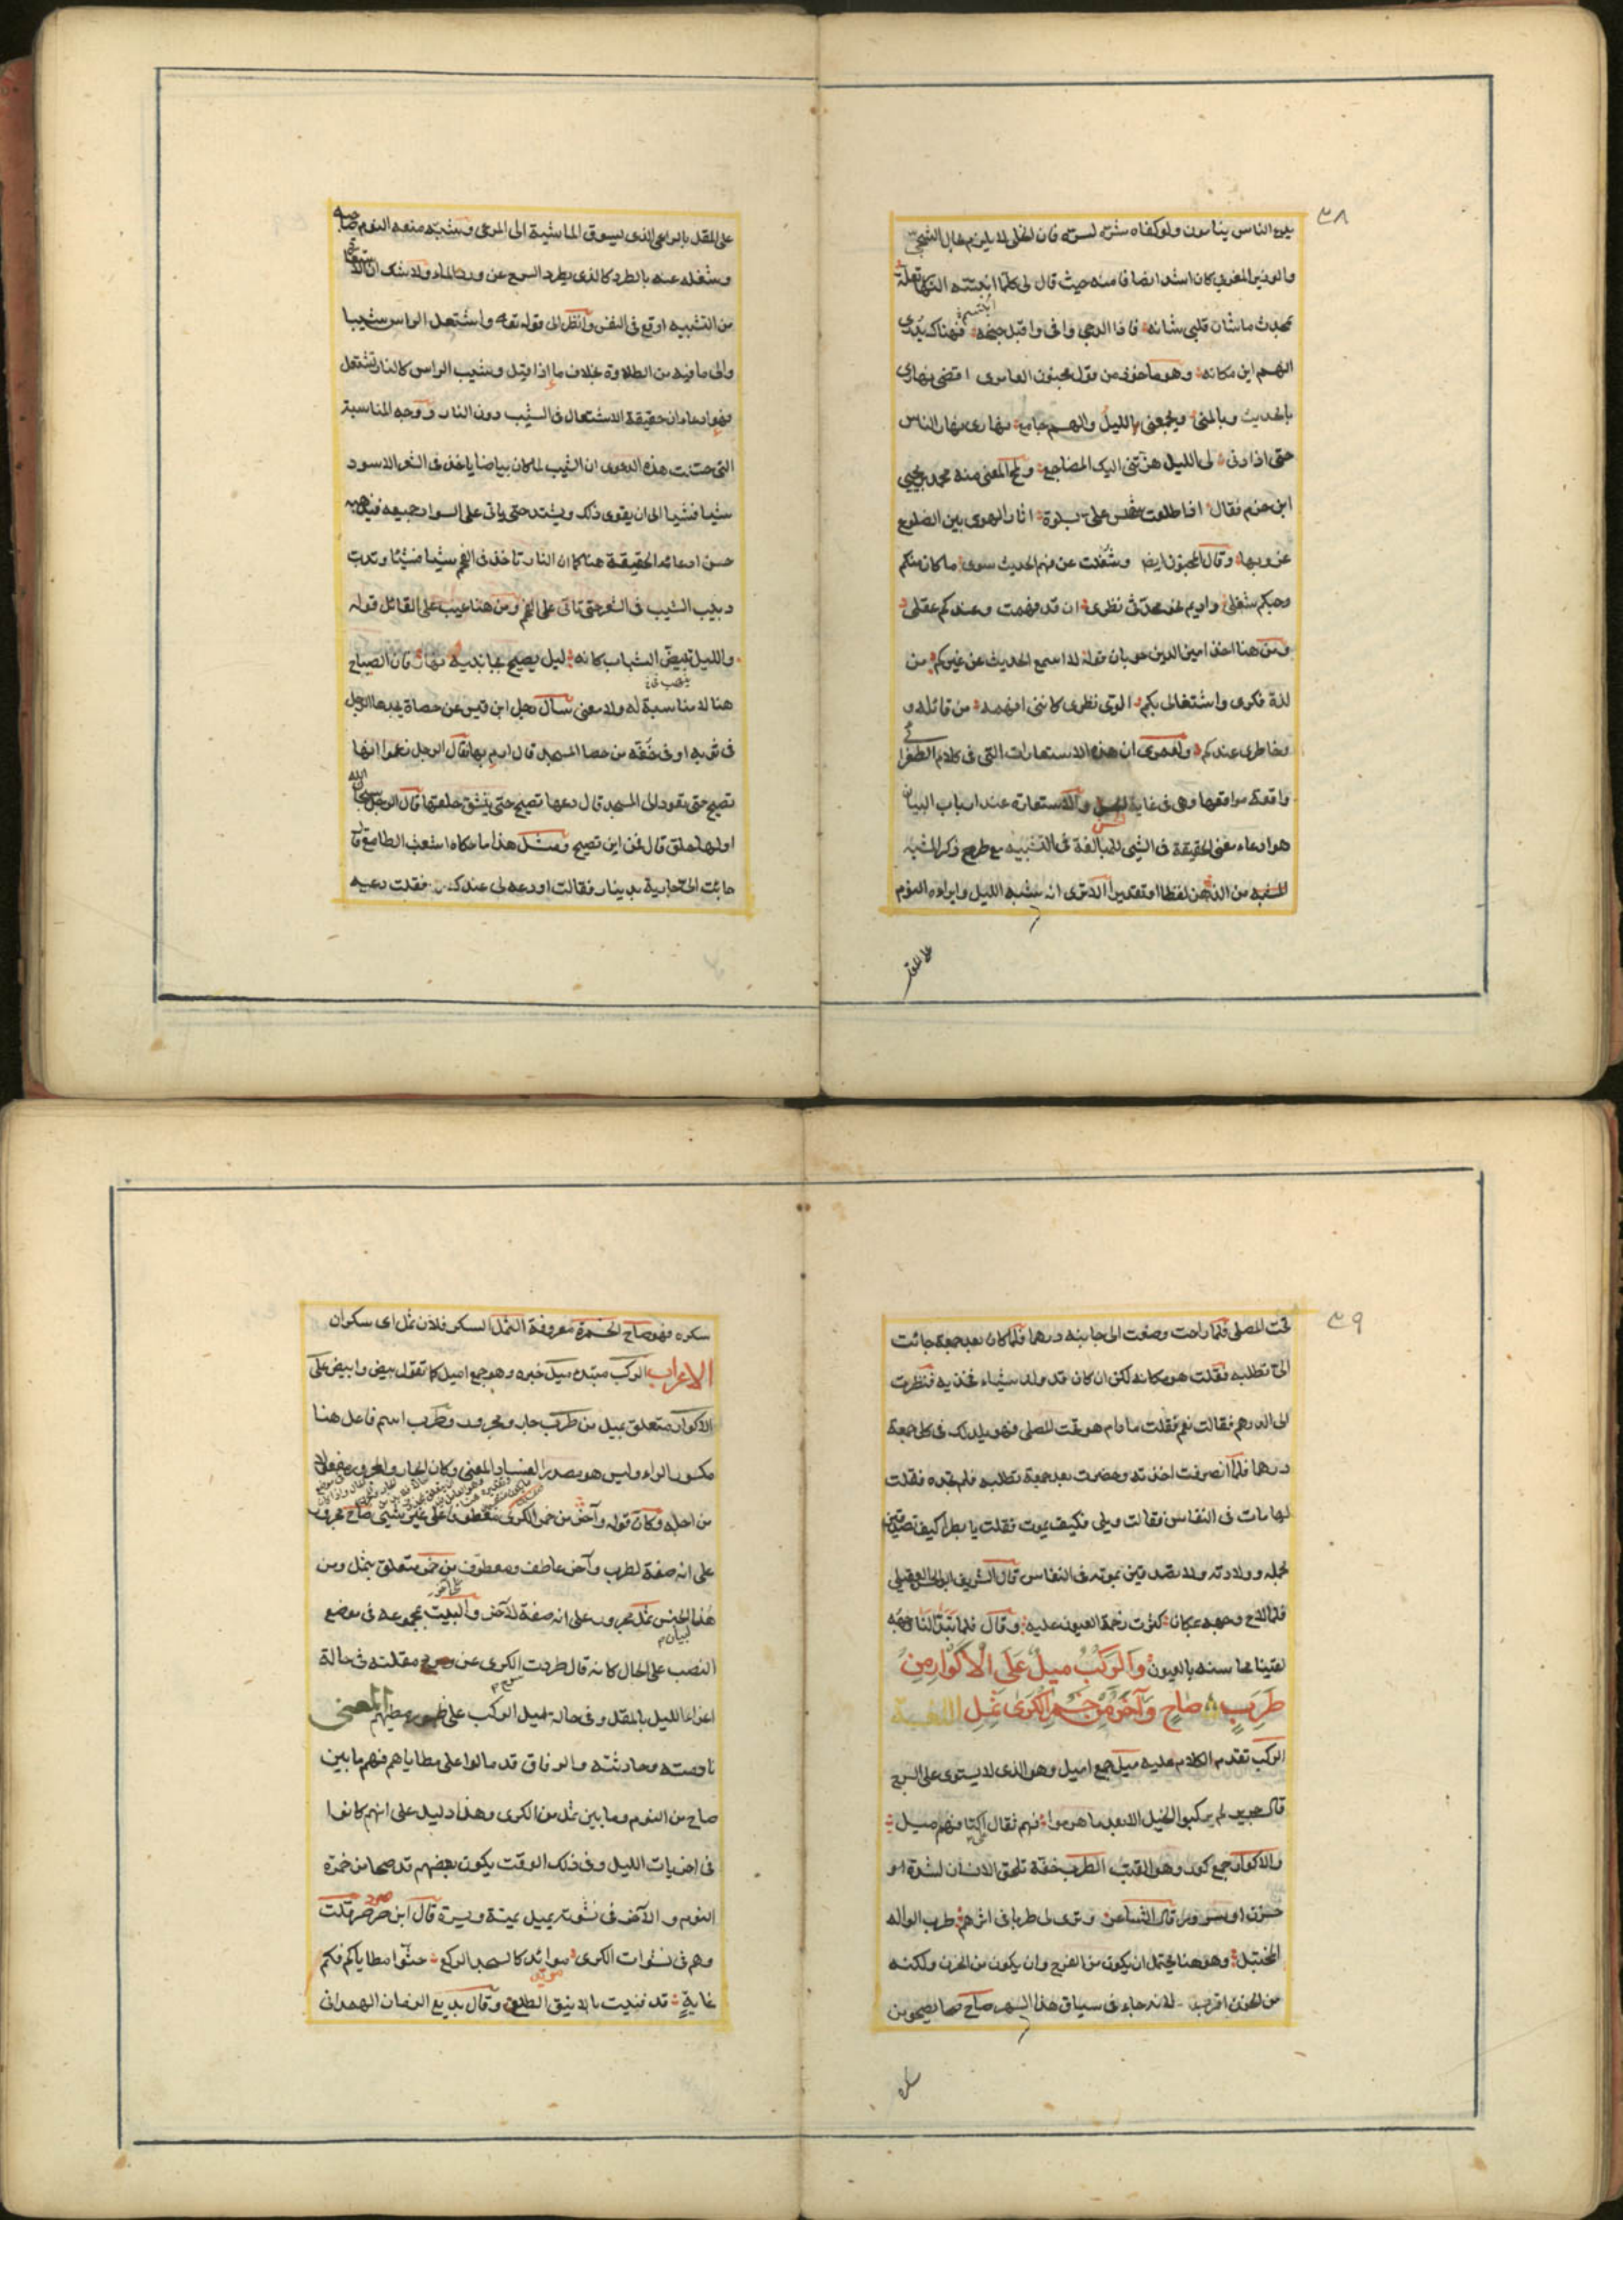 ٣٨
يدع الناس ينامون ولو كفاه شره لسره فان الخلى لا يلزم بحال الشجى
والوزير المغربى كان اشد انصافا منه حيث قال لى كلما ابتسم النهار تعلة
بمحدث ما شان قلبى شانه فاذا الدجى وافى واقبل جنحه فهناك يدرى
الهم اين مكانه وهو ماخوذ من قول مجنون العامرى اقضى نهارى
بالحديث وبالمنى ويجمعنى بالليل والهم جامع نهارى نهار الناس
حتى اذا دنى لى الليل هزتنى اليك المضاجع ولمح المعنى منه محمد بن يحيى
ابن حزم فقال اذا طلعت شمس على بسلوة اثار الهوى بين الضلوع
غروبها وقال المجنون ايضا وشغلت عن فهم الحديث سوى ما كان منكم
وحبكم شغلى واديم نحو محدثى نظرى ان قد فهمت وعندكم عقلى
ومن هنا اخذ امين الدين جوبان قوله لا اسمع الحديث عن غيركم من
لذة فكرى واشتغالى بكم الوى نظرى كاننى افهمه من قائله و
وخاطرى عندكم ولعمرى ان هذه الاستعارات التى فى كلام الطغرائى
واقعة مواقعها وهى فى غاية الحسن والاستعارة عند ارباب البيان
هو ادعاء معنى الحقيقة فى الشىء للمبالغة فى التشبيه مع طرح ذكر المشبه
للمشبه من الذهن لفظا او تقديرا الا ترى انه شبه الليل وايراده النوم
على المقل
على المقل بالراعى الذى يسوق الماشية الى المرعى وشبه منعه النوم صاحبه
وشغله عنه بالطرد كالذى يطرد السرح عن ورد الماء ولا شك ان الاستعارة
من التشبيه اوقع فى النفس وانظر الى قوله تعالى واشتعل الراس شيبا
والى ما فيه من الطلاوة بخلاف ما اذا قيل وشيب الراس كالنار تشتعل
فهو ادعاء ان حقيقة الاشتعال فى الشيب دون النار ووجه المناسبة
التى حسنت هذه الدعوى ان الشيب لما كان بياضا ياخذ فى الشعر الاسود
شيئا فشيئا الى ان يقوى ذلك ويشتد حتى ياتى على السواد جميعه فيذهبه
حسن ادعاء الحقيقة هنا كما ان النار تاخذ فى الفحم شيئا فشيئا وتدب
دبيب الشيب فى الشعر حتى تاتى على الفحم ومن هنا عيب على القائل قوله
والليل تبيض الشهاب كانه ليل يصيح بجانبيه نهار فان الصياح
هنا لا مناسبة له ولا معنى سأل رجل ابن قيس عن حصاة يجدها الرجل
فى ثوبه او فى خفه من حصا المسجد قال ارم بها فقال الرجل زعموا انها
تصيح حتى تعود الى المسجد قال دعها تصيح حتى ينشق حلقها قال الرجل سبحان الله
اولها حلق قال فمن اين تصيح ومثل هذا ما حكاه اشعب الطامع قال
جائت الى جارية بدينار فقالت اودعه لى عندك فقلت دعيه
٣٩
تحت المصلى فلما راحت وضعت الى جانبه درهما فلما كان بعد جمعة جائت
الى تطلبه فقلت هو مكانه لكن ان كان قد ولد شيئا فخذيه فنظرت
الى الدرهم فقالت نعم فقلت ما دام هو تحت المصلى فهو يلد لك فى كل جمعة
درهما فلما انصرفت اخذته وحضرت بعد جمعة تطلبه فلم تجده فقلت
لها مات فى النفاس فقالت ويلى فكيف يموت فقلت يا بظرا كيف تصدقين
بحبله وولادته ولا تصدقين بموته فى النفاس قال الشريف ابو الحسن العقيلى
فلما لاح وجهه عيانا كثرت زخمة العيون عليه وقال فلما تبدى لنا وجهه
لقينا محاسنه بالعيون والركب ميل على الاكوار من
طرب صاح وآخر من خمر الكرى ثمل اللغة
الركب تقدم الكلام عليه ميل جمع اميل وهو الذى لا يستوى على السرج
قال جرير لم يركبوا الخيل الا بعد ما هرموا فهم ثقال على اكتافهم ميل
والاكوار جمع كور وهو القتب الطرب خفة تلحق الانسان لشدة او
حزن او سرور قال الشاعر وترى لى طربا فى اثرهم طرب الواله
المختبل وهو هنا يحتمل ان يكون من الفرح وان يكون من الحزن ولكنه
من الحزن اقرب لانه جاء فى سياق هذا السهر صاح صحا يصحو من
سكره
سكره فهو صاح الخمرة معروفة الثمل السكر فلان ثمل اى سكران
الاعراب الركب مبتدء ميل خبره وهو جمع اميل كما تقول بيض وابيض على
الاكوار متعلق بميل من طرب جار ومجرور وطرب اسم فاعل هنا
مكسور الراء وليس هو بمصدر لفساد المعنى وكان الجار والمجرور مفعولا
من اجله وكان قوله وآخر من خمر الكرى معطوفا على غير شىء صاح مجرور
على انه صفة لطرب وآخر عاطف ومعطوف من خمر متعلق بثمل ومن
هذا لبيان الجنس ثمل مجرور على انه صفة لآخر والبيت بمجموعه فى موضع
النصب على الحال كانه قال طردت الكرى عن سرح مقلته فى حالة
اغراء الليل بالمقل وفى حالة ميل الركب على ظهور مطيهم المعنى
نادمته وحادثته والرفاق قد مالوا على مطاياهم فهم ما بين
صاح من النوم وما بين ثمل من الكرى وهذا دليل على انهم كانوا
فى اخريات الليل وفى ذلك الوقت يكون بعضهم قد صحا من خمرة
النوم والآخر فى نشوته يميل يمنة ويسرة قال ابن صردر قلت
وهم فى نشوات الكرى موائد كالسجد الركع حثوا مطاياكم فكم
غاية قد فنيت بالاينق الطلع وقال بديع الزمان الهمدانى